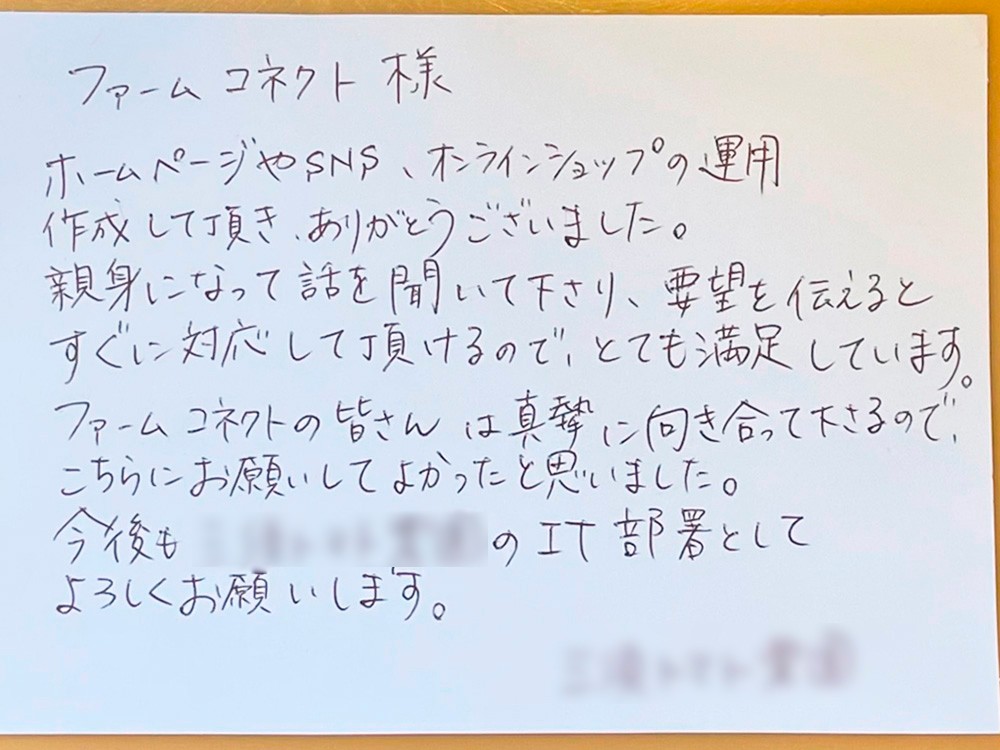 ファームコネクト様
ホームページやSNS、オンラインショップの運用
作成して頂き、ありがとうございました。
親身になって話を聞いて下さり、要望を伝えると
すぐに対応して頂けるので、とても満足しています。
ファームコネクトの皆さんは真摯に向き合って下さるので、
こちらにお願いしてよかったと思いました。
今後も
のIT部署として
よろしくお願いします。